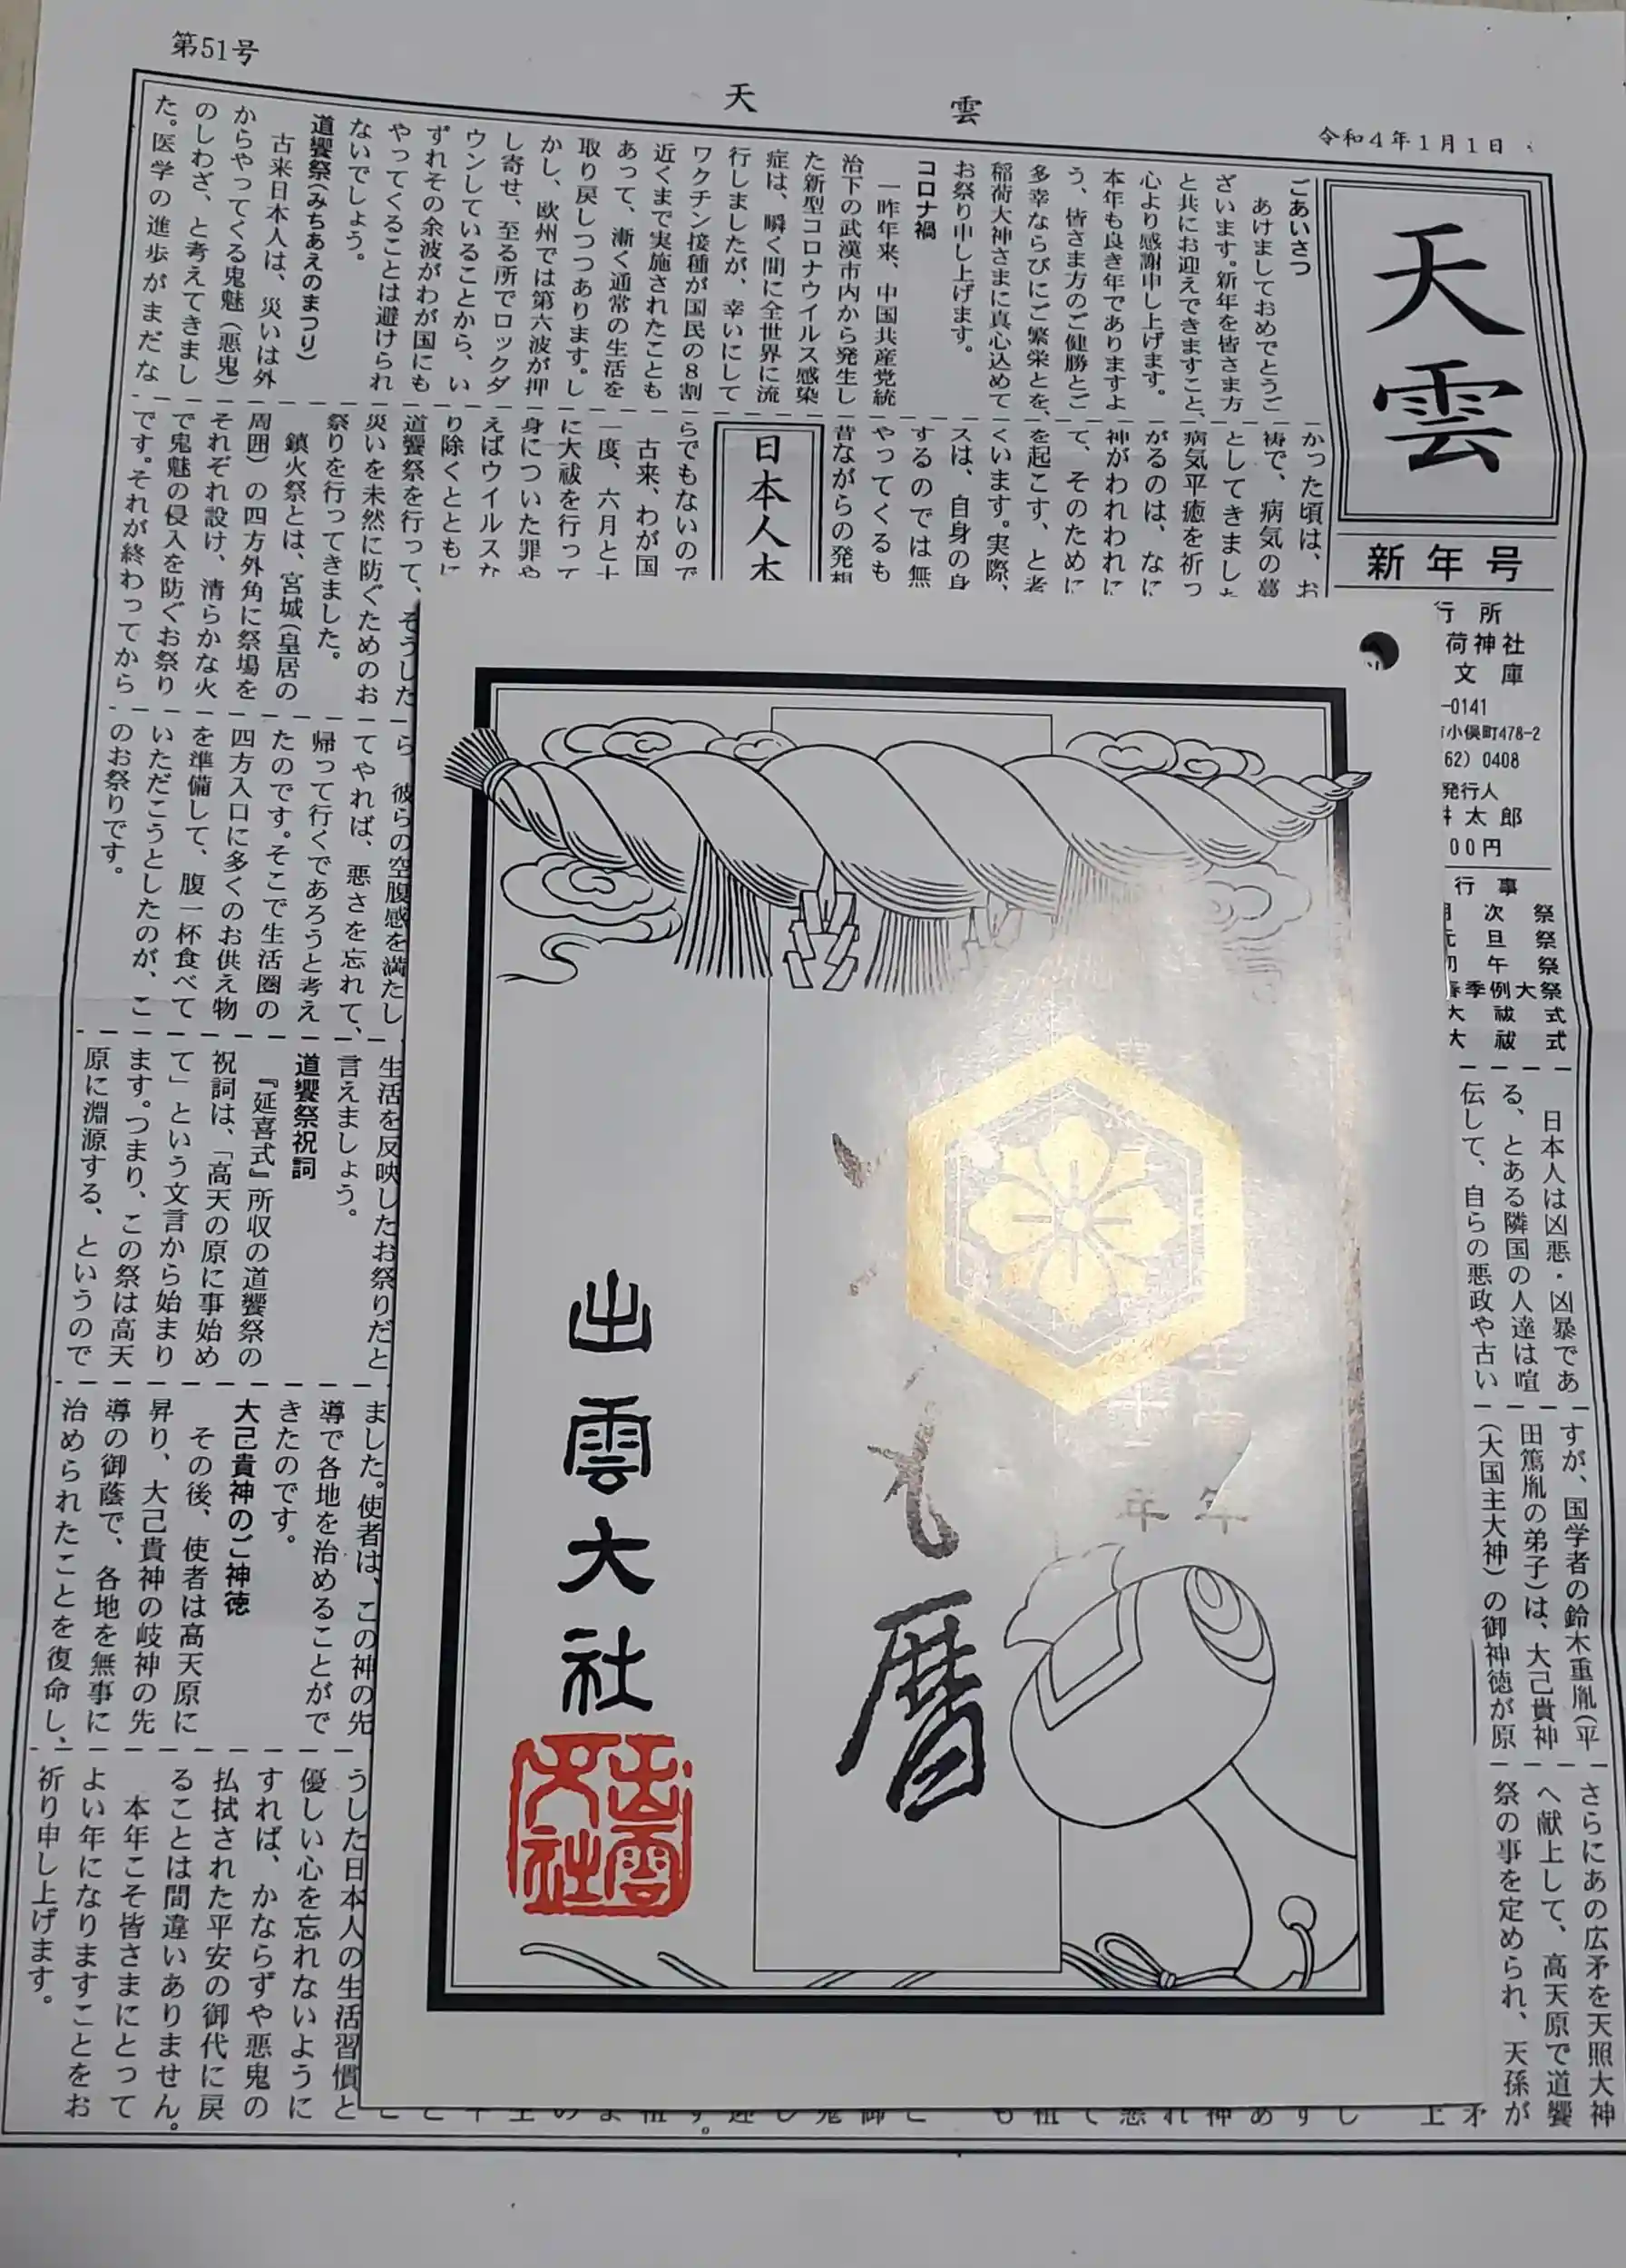 第51号
天雲
令和4年1月1日
天雲
新年号
行所
荷神社
文庫
-0141
小俣町478-2
62) 0408
発行人
太郎
00円
行事
次祭
旦祭
午祭
季例大祭
大祓式
大祓式
ごあいさつ
あけましておめでとうご
ざいます。新年を皆さま方
と共にお迎えできますこと、
心より感謝申し上げます。
本年も良き年でありますよ
う、皆さま方のご健勝とご
多幸ならびにご繁栄とを、
稲荷大神さまに真心込めて
お祭り申し上げます。
コロナ禍
一昨年来、中国共産党統
治下の武漢市内から発生し
た新型コロナウイルス感染
症は、瞬く間に全世界に流
行しましたが、幸いにして
ワクチン接種が国民の8割
近くまで実施されたことも
あって、漸く通常の生活を
取り戻しつつあります。し
かし、欧州では第六波が押
し寄せ、至る所でロックダ
ウンしていることから、い
ずれその余波がわが国にも
やってくることは避けられ
ないでしょう。
道饗祭(みちあえのまつり)
古来日本人は、災いは外
からやってくる鬼魅(悪鬼)
のしわざ、と考えてきまし
た。医学の進歩がまだな
かった頃は、お
祷で、病気の蔓
としてきました
病気平癒を祈っ
がるのは、なに
神がわれわれに
て、そのために
を起こす、と考
くいます。実際、
スは、自身の身
するのでは無
やってくるも
昔ながらの発想
日本人本
らでもないので
古来、わが国
一度、六月と十
に大祓を行って
身についた罪や
えばウイルスな
り除くとともに
道饗祭を行って、そうした
災いを未然に防ぐためのお
祭りを行ってきました。
鎮火祭とは、宮城(皇居の
周囲)の四方外角に祭場を
それぞれ設け、清らかな火
で鬼魅の侵入を防ぐお祭り
です。それが終わってから
ら、彼らの空腹感を満たし
てやれば、悪さを忘れて、
帰って行くであろうと考え
たのです。そこで生活圏の
四方入口に多くのお供え物
を準備して、腹一杯食べて
いただこうとしたのが、こ
のお祭りです。
日本人は凶悪・凶暴であ
る、とある隣国の人達は喧
伝して、自らの悪政や古い
生活を反映したお祭りだと
言えましょう。
道饗祭祝詞
『延喜式』所収の道饗祭の
祝詞は、「高天の原に事始め
て」という文言から始まり
ます。つまり、この祭は高天
原に淵源する、というので
すが、国学者の鈴木重胤(平
田篤胤の弟子)は、大己貴神
(大国主大神)の御神徳が原
ました。使者は、この神の先
導で各地を治めることがで
きたのです。
大己貴神のご神徳
その後、使者は高天原に
昇り、大己貴神の岐神の先
導の御蔭で、各地を無事に
治められたことを復命し、
さらにあの広矛を天照大神
へ献上して、高天原で道饗
祭の事を定められ、天孫が
うした日本人の生活習慣と
優しい心を忘れないように
すれば、かならずや悪鬼の
払拭された平安の御代に戻
ることは間違いありません。
本年こそ皆さまにとって
よい年になりますことをお
祈り申し上げます。
年
年
暦
出雲大社
出雲
大社